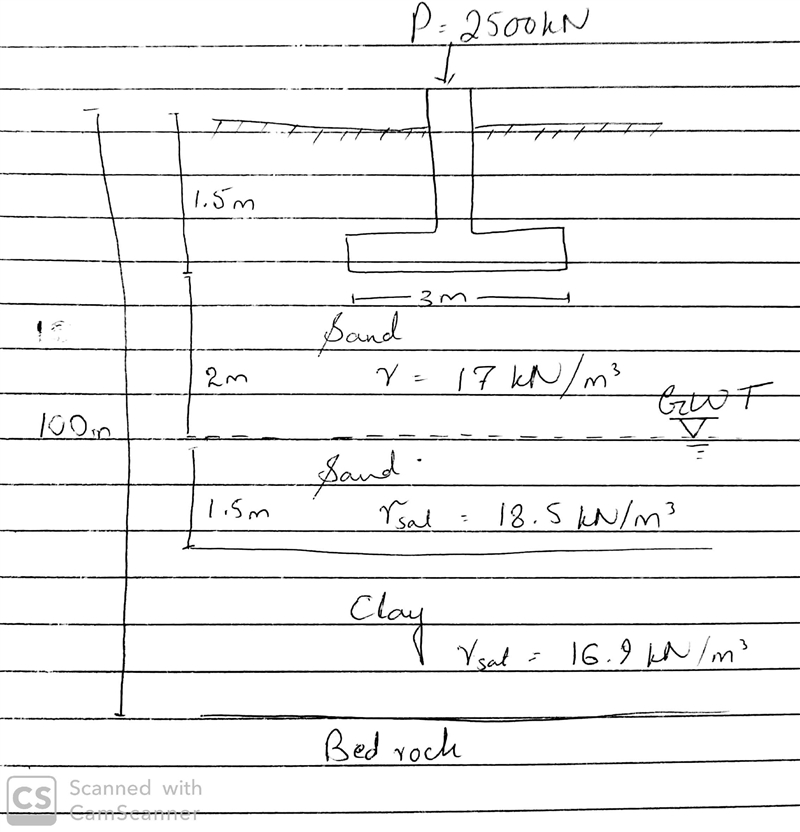 P = 2500kN
1.5m
3m
Sand
2m
γ = 17 kN/m³
GWT
100m
Sand
1.5m
γsat = 18.5 kN/m³
Clay
γsat = 16.9 kN/m³
Bedrock
CS Scanned with
CamScanner